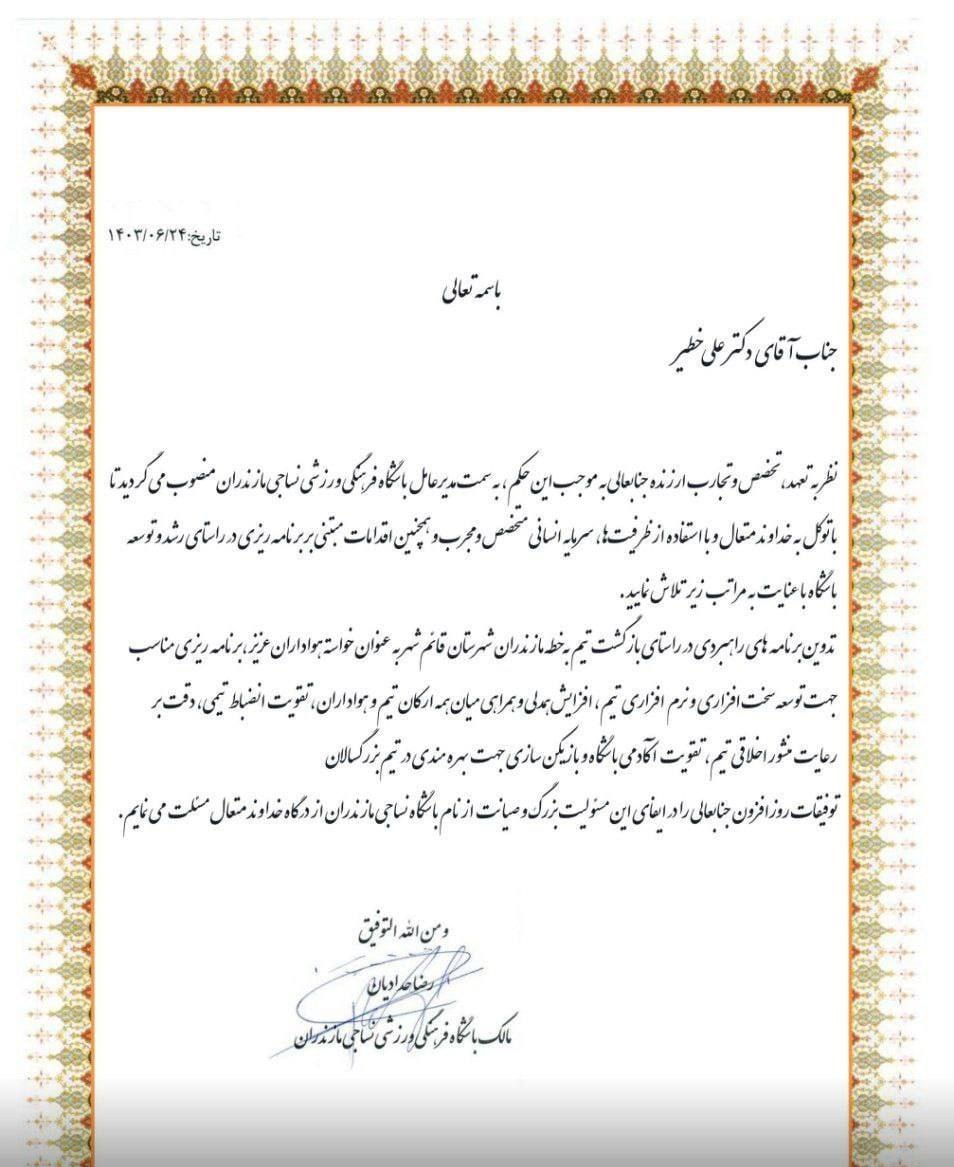 تاریخ:۱۴۰۳/۰۶/۲۴
باسمه تعالی
جناب آقای دکتر علی خطیر
نظر به تعهد، تخصص و تجارب ارزنده جنابعالی به موجب این حکم، به سمت مدیرعامل باشگاه فرهنگی ورزشی نساجی مازندران منصوب می گردید تا
با توکل به خداوند متعال و با استفاده از ظرفیت ها، سرمایه انسانی متخصص و مجرب و همچنین اقدامات مبتنی بر برنامه ریزی در راستای رشد و توسعه
باشگاه با عنایت به مراتب زیر تلاش نمایید.
تدوین برنامه های راهبردی در راستای بازگشت تیم به خطه مازندران شهرستان قائم شهر به عنوان خواسته هواداران عزیز، برنامه ریزی مناسب
جهت توسعه سخت افزاری و نرم افزاری تیم، افزایش همدلی و همراهی میان همه ارکان تیم و هواداران، تقویت انضباط تیمی، دقت بر
رعایت منشور اخلاقی تیم، تقویت آکادمی باشگاه و بازیکن سازی جهت بهره مندی در تیم بزرگسالان
توفیقات روزافزون جنابعالی را در ایفای این مسئولیت بزرگ و صیانت از نام باشگاه نساجی مازندران از درگاه خداوند متعال مسئلت می نمایم.
و من الله التوفیق
رضا حدادیان
مالک باشگاه فرهنگی ورزشی نساجی مازندران